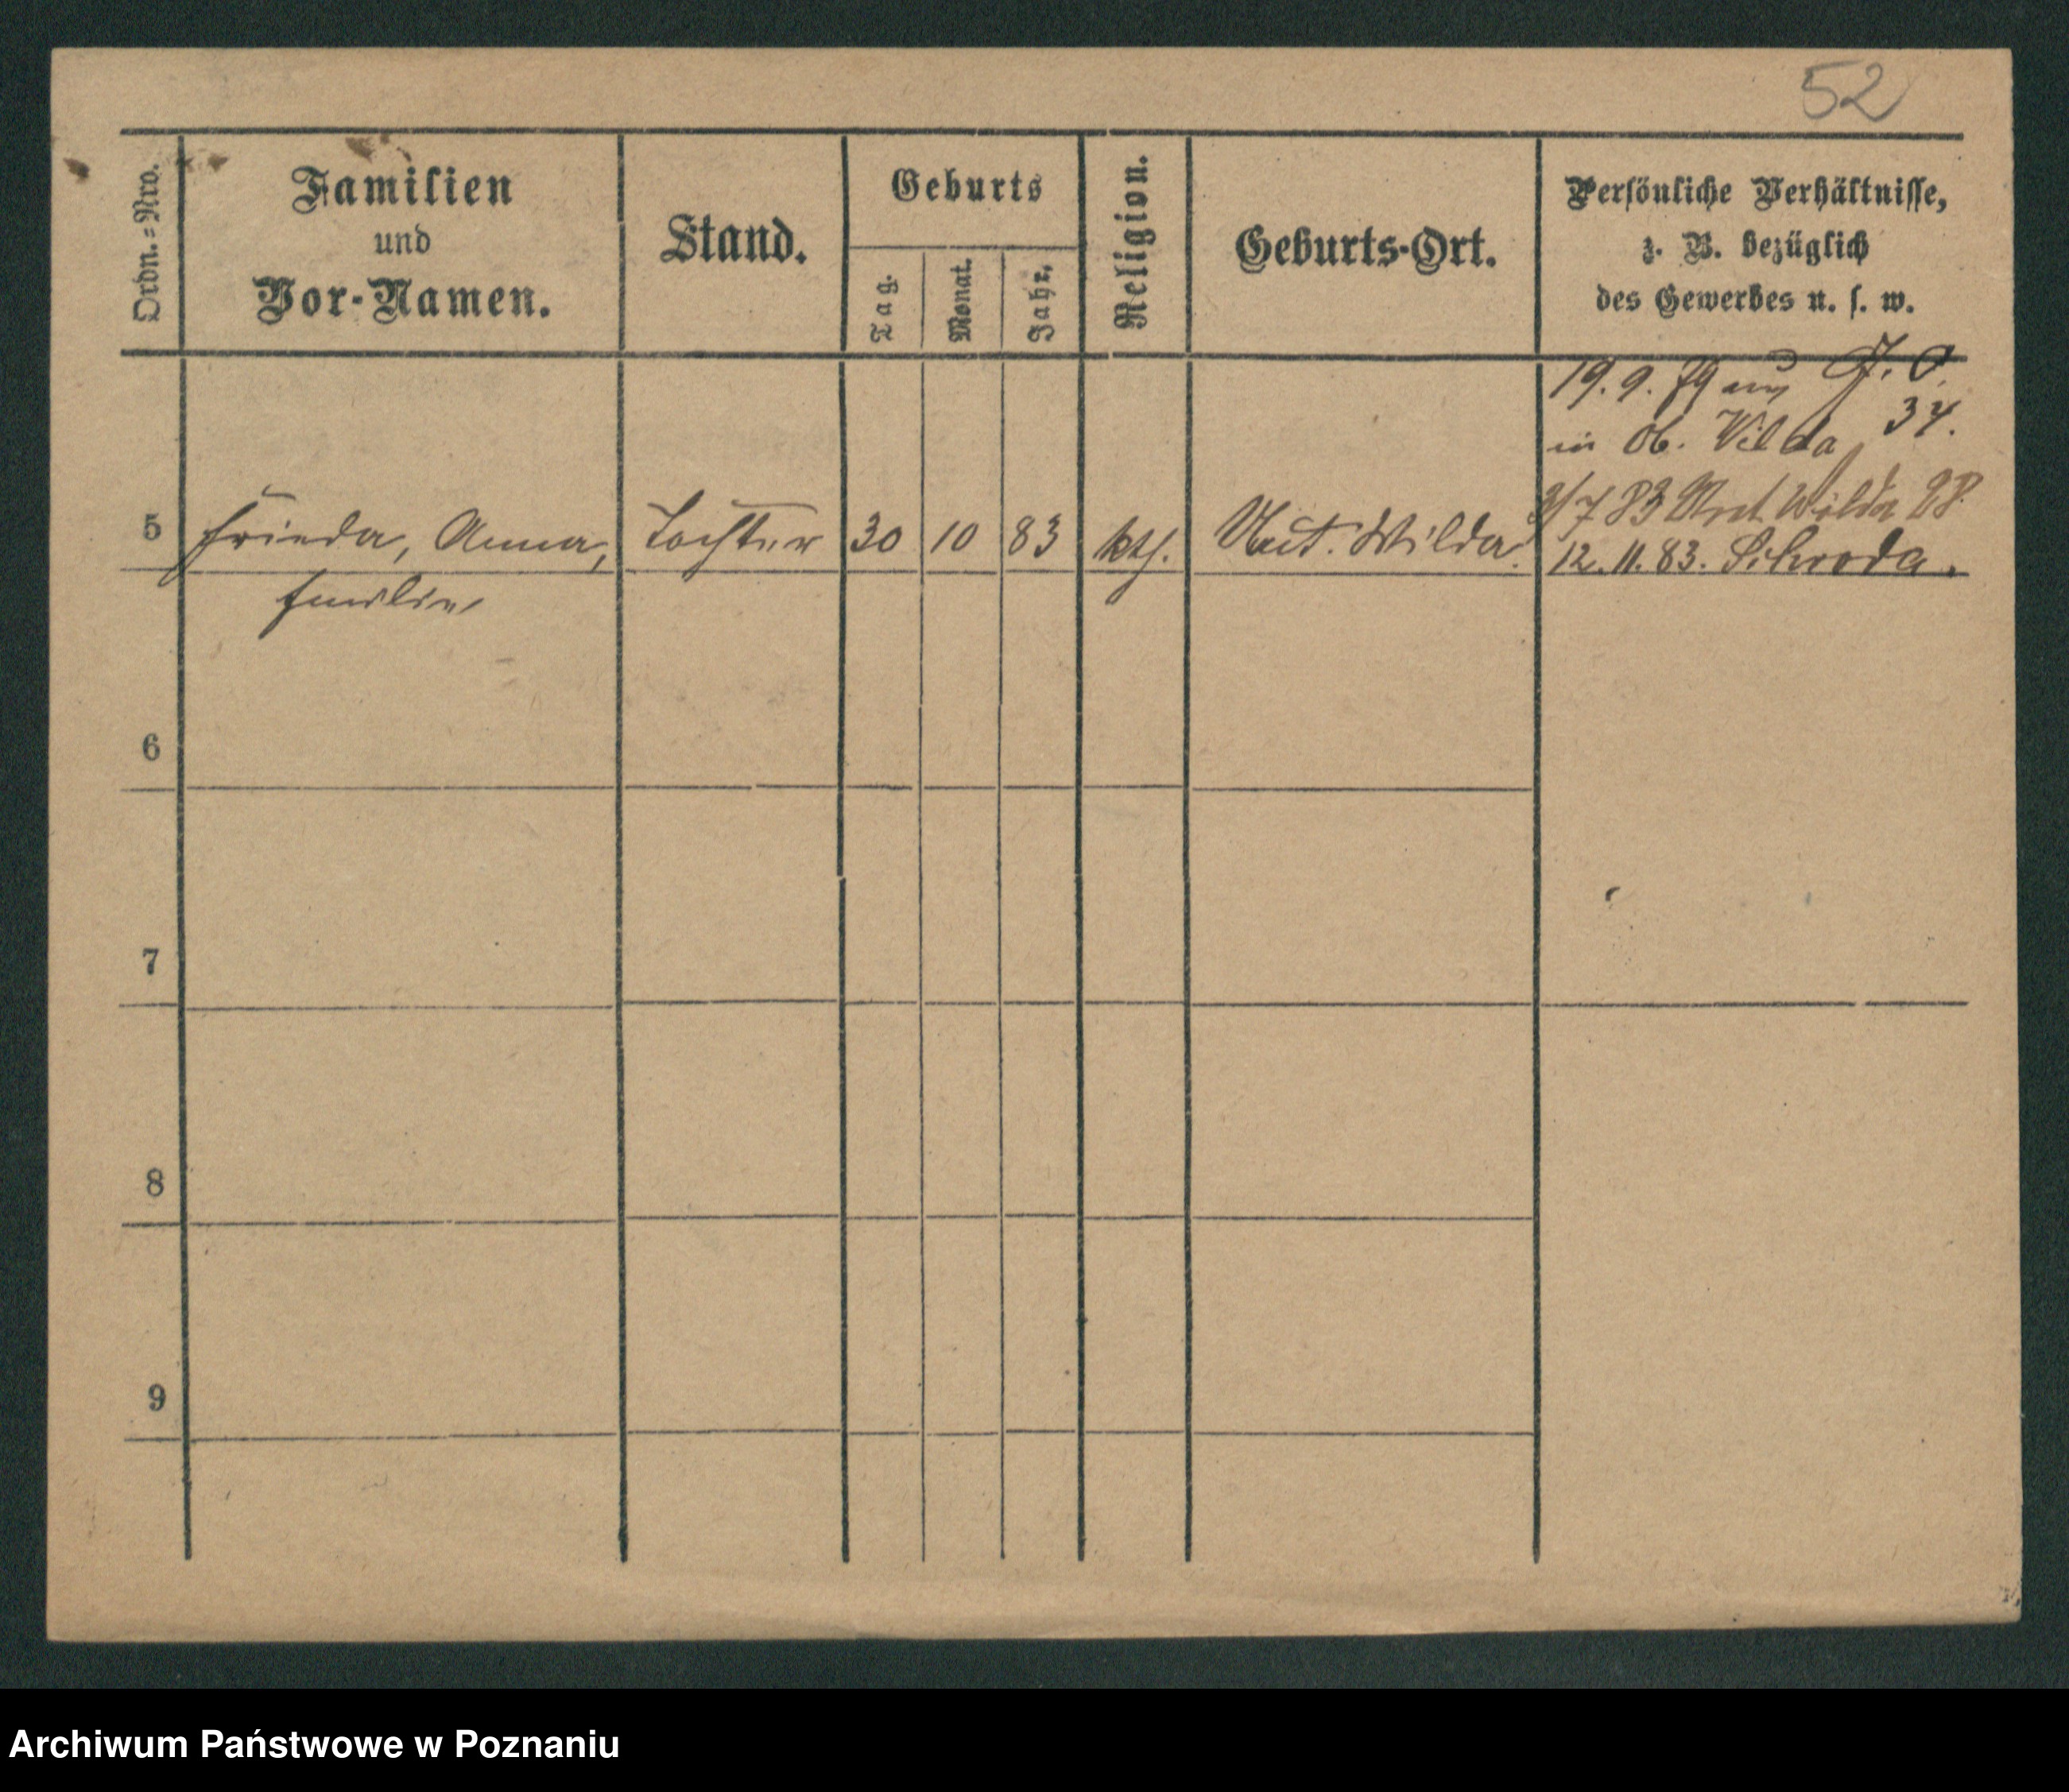 52
Ordn.-Nro.
Familien
und
Vor-Namen.
Stand.
Geburts
Tag.
Monat.
Jahr.
Religion.
Geburts-Ort.
Persönliche Verhältnisse,
z. B. bezüglich
des Gewerbes u. s. w.
19. 9. 79
in Ob. Wilda 34.
5 Frieda, Anna, Tochter 30 10 83 kth. Unt. Wilda.
Emilie
7 83 Unt. Wilda 28.
12. 11. 83. Schroda.
6
7
8
9
Archiwum Państwowe w Poznaniu